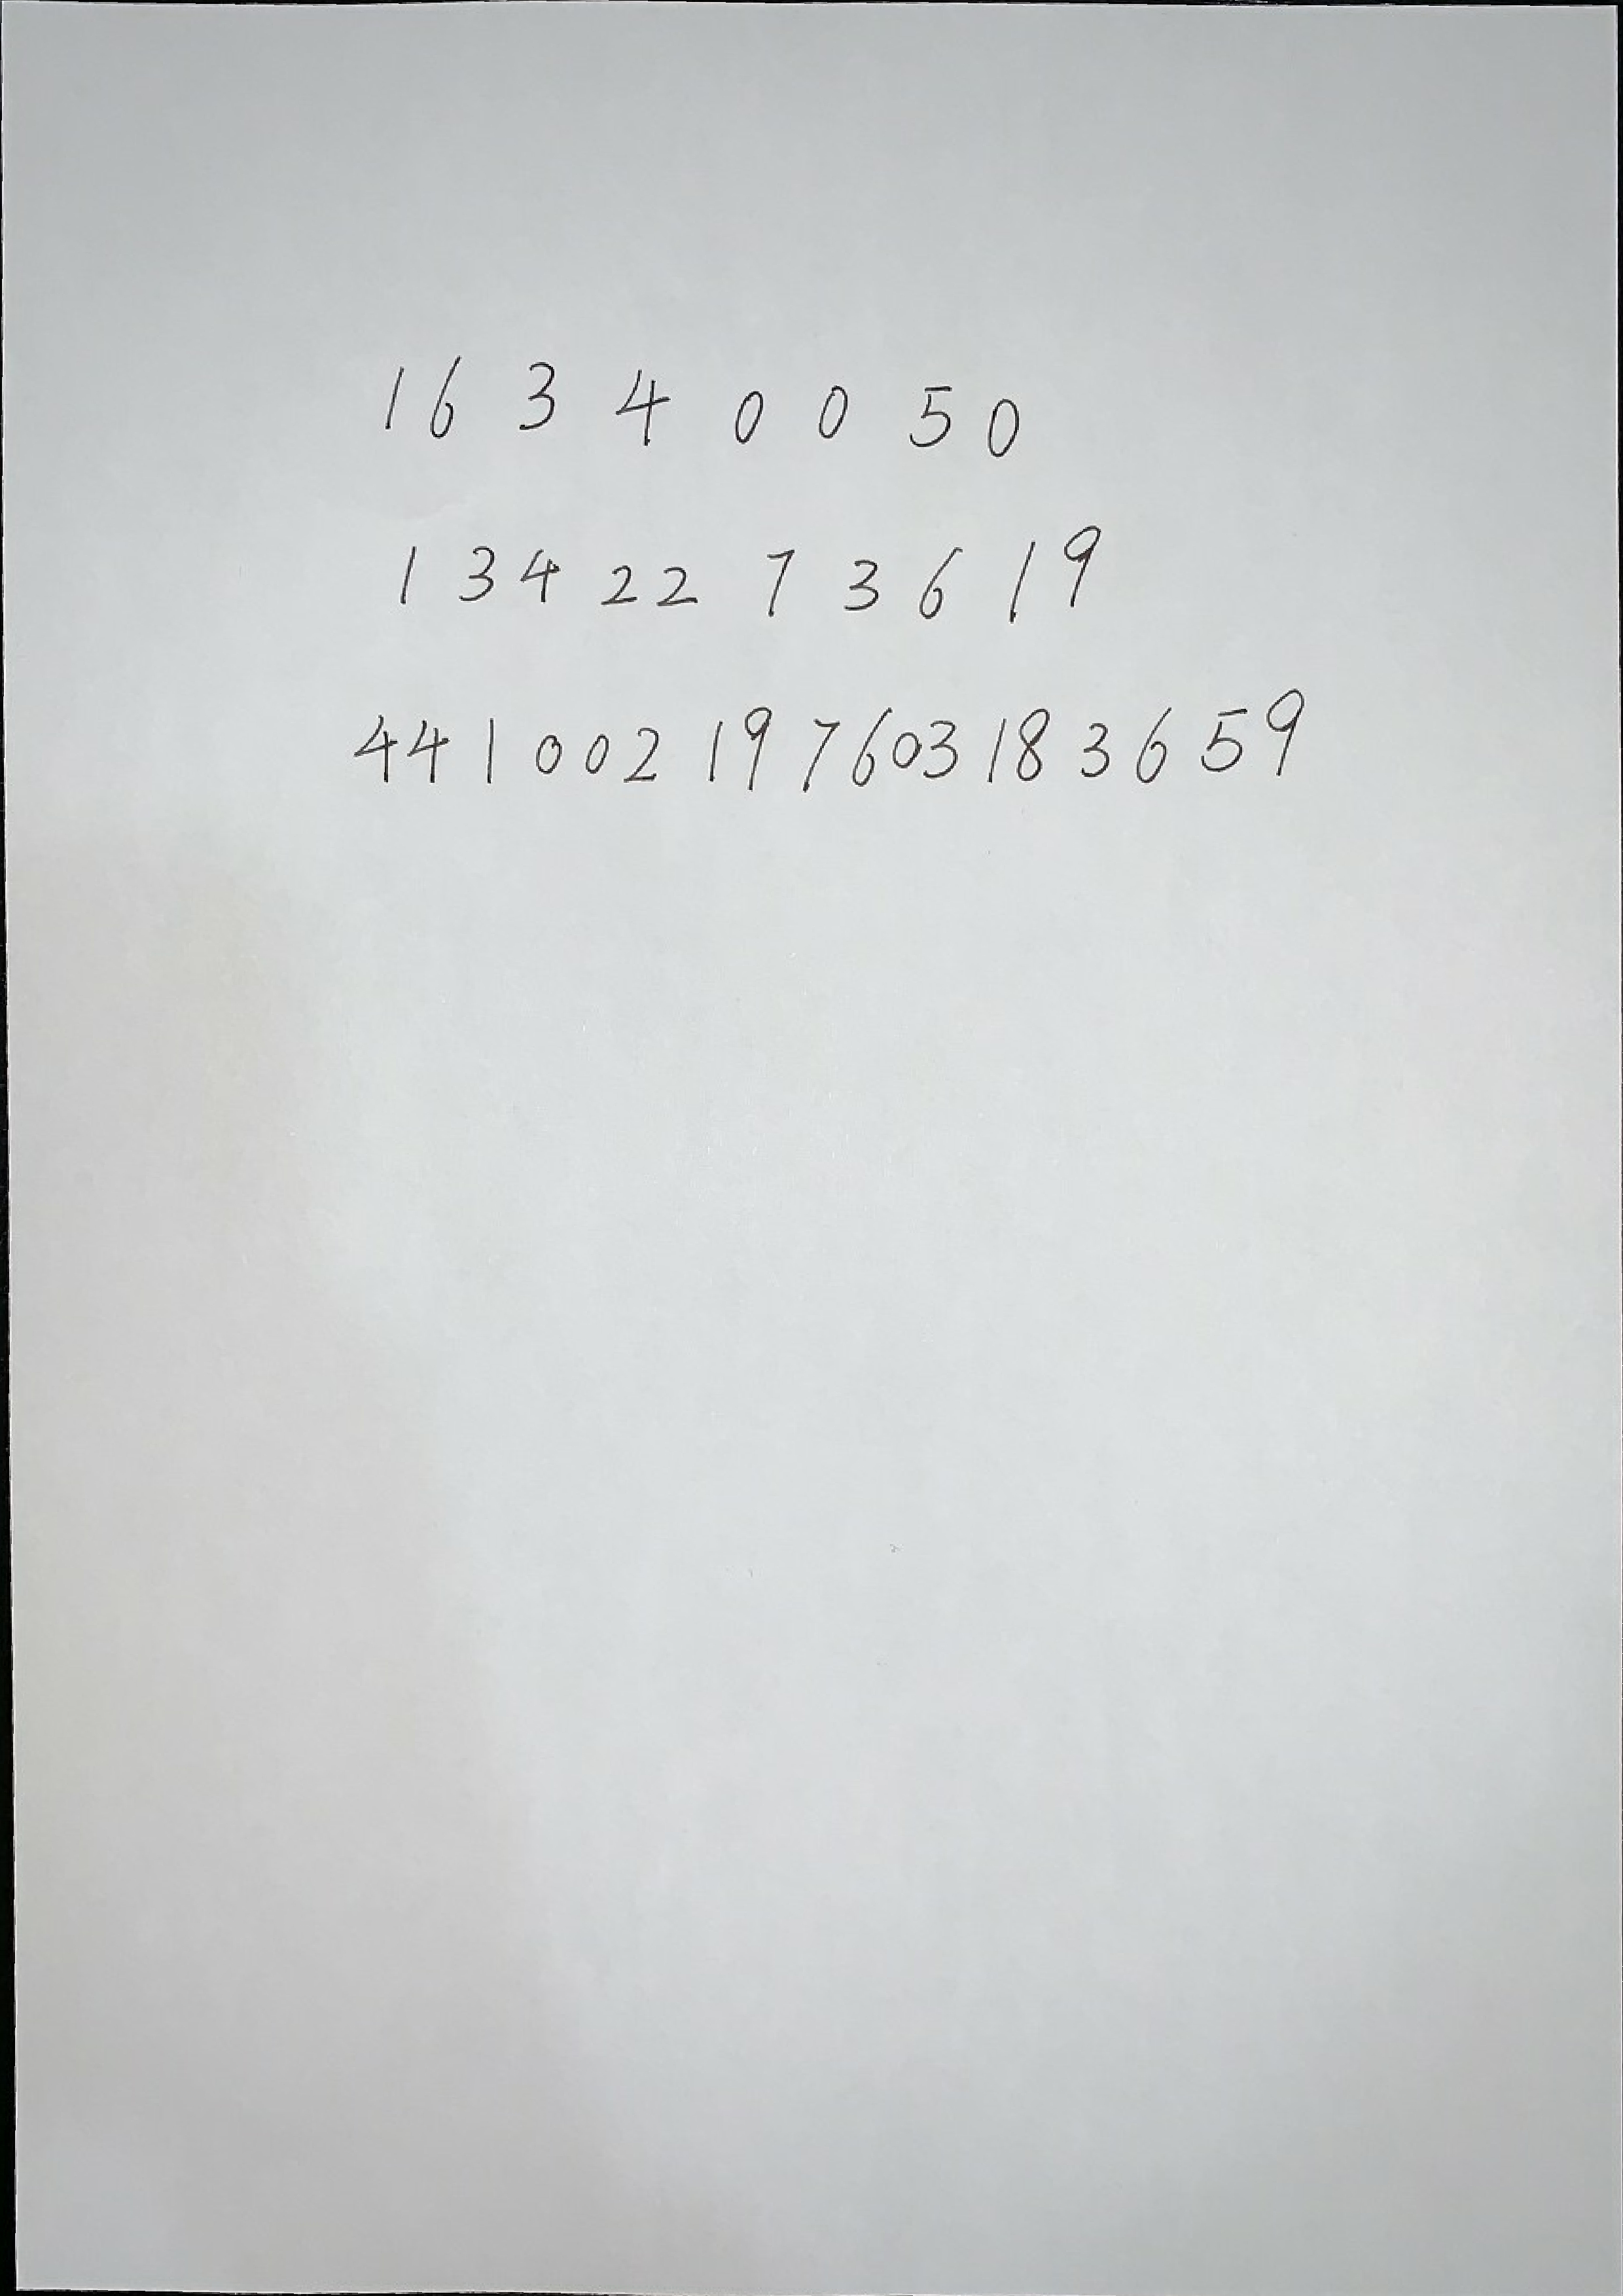 16 3 4 0 0 5 0
1 3 4 22 7 3 6 19
44 1 002 19 7603 18 3 6 59